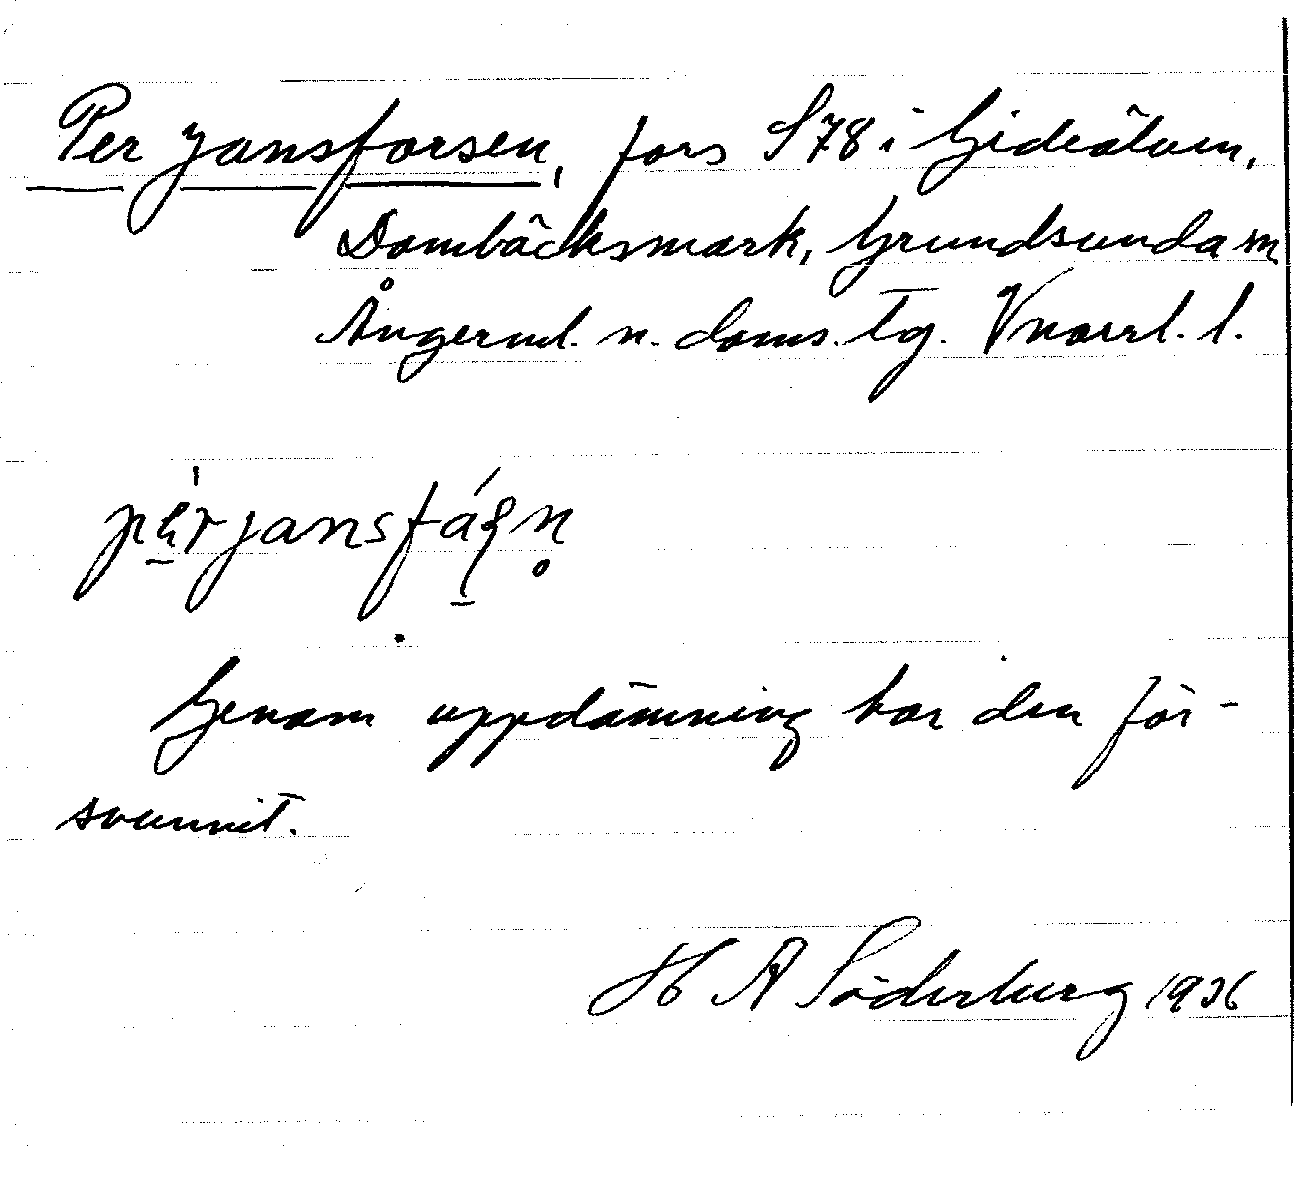 Per Jansforsen, fors S78 i Gideälven,
Dombäcksmark, Grundsunda sn
Ångerml. n. doms. tg. Vnorrl. l.
Genom uppdämning har den för-
svunnit.
H A Söderberg 1936